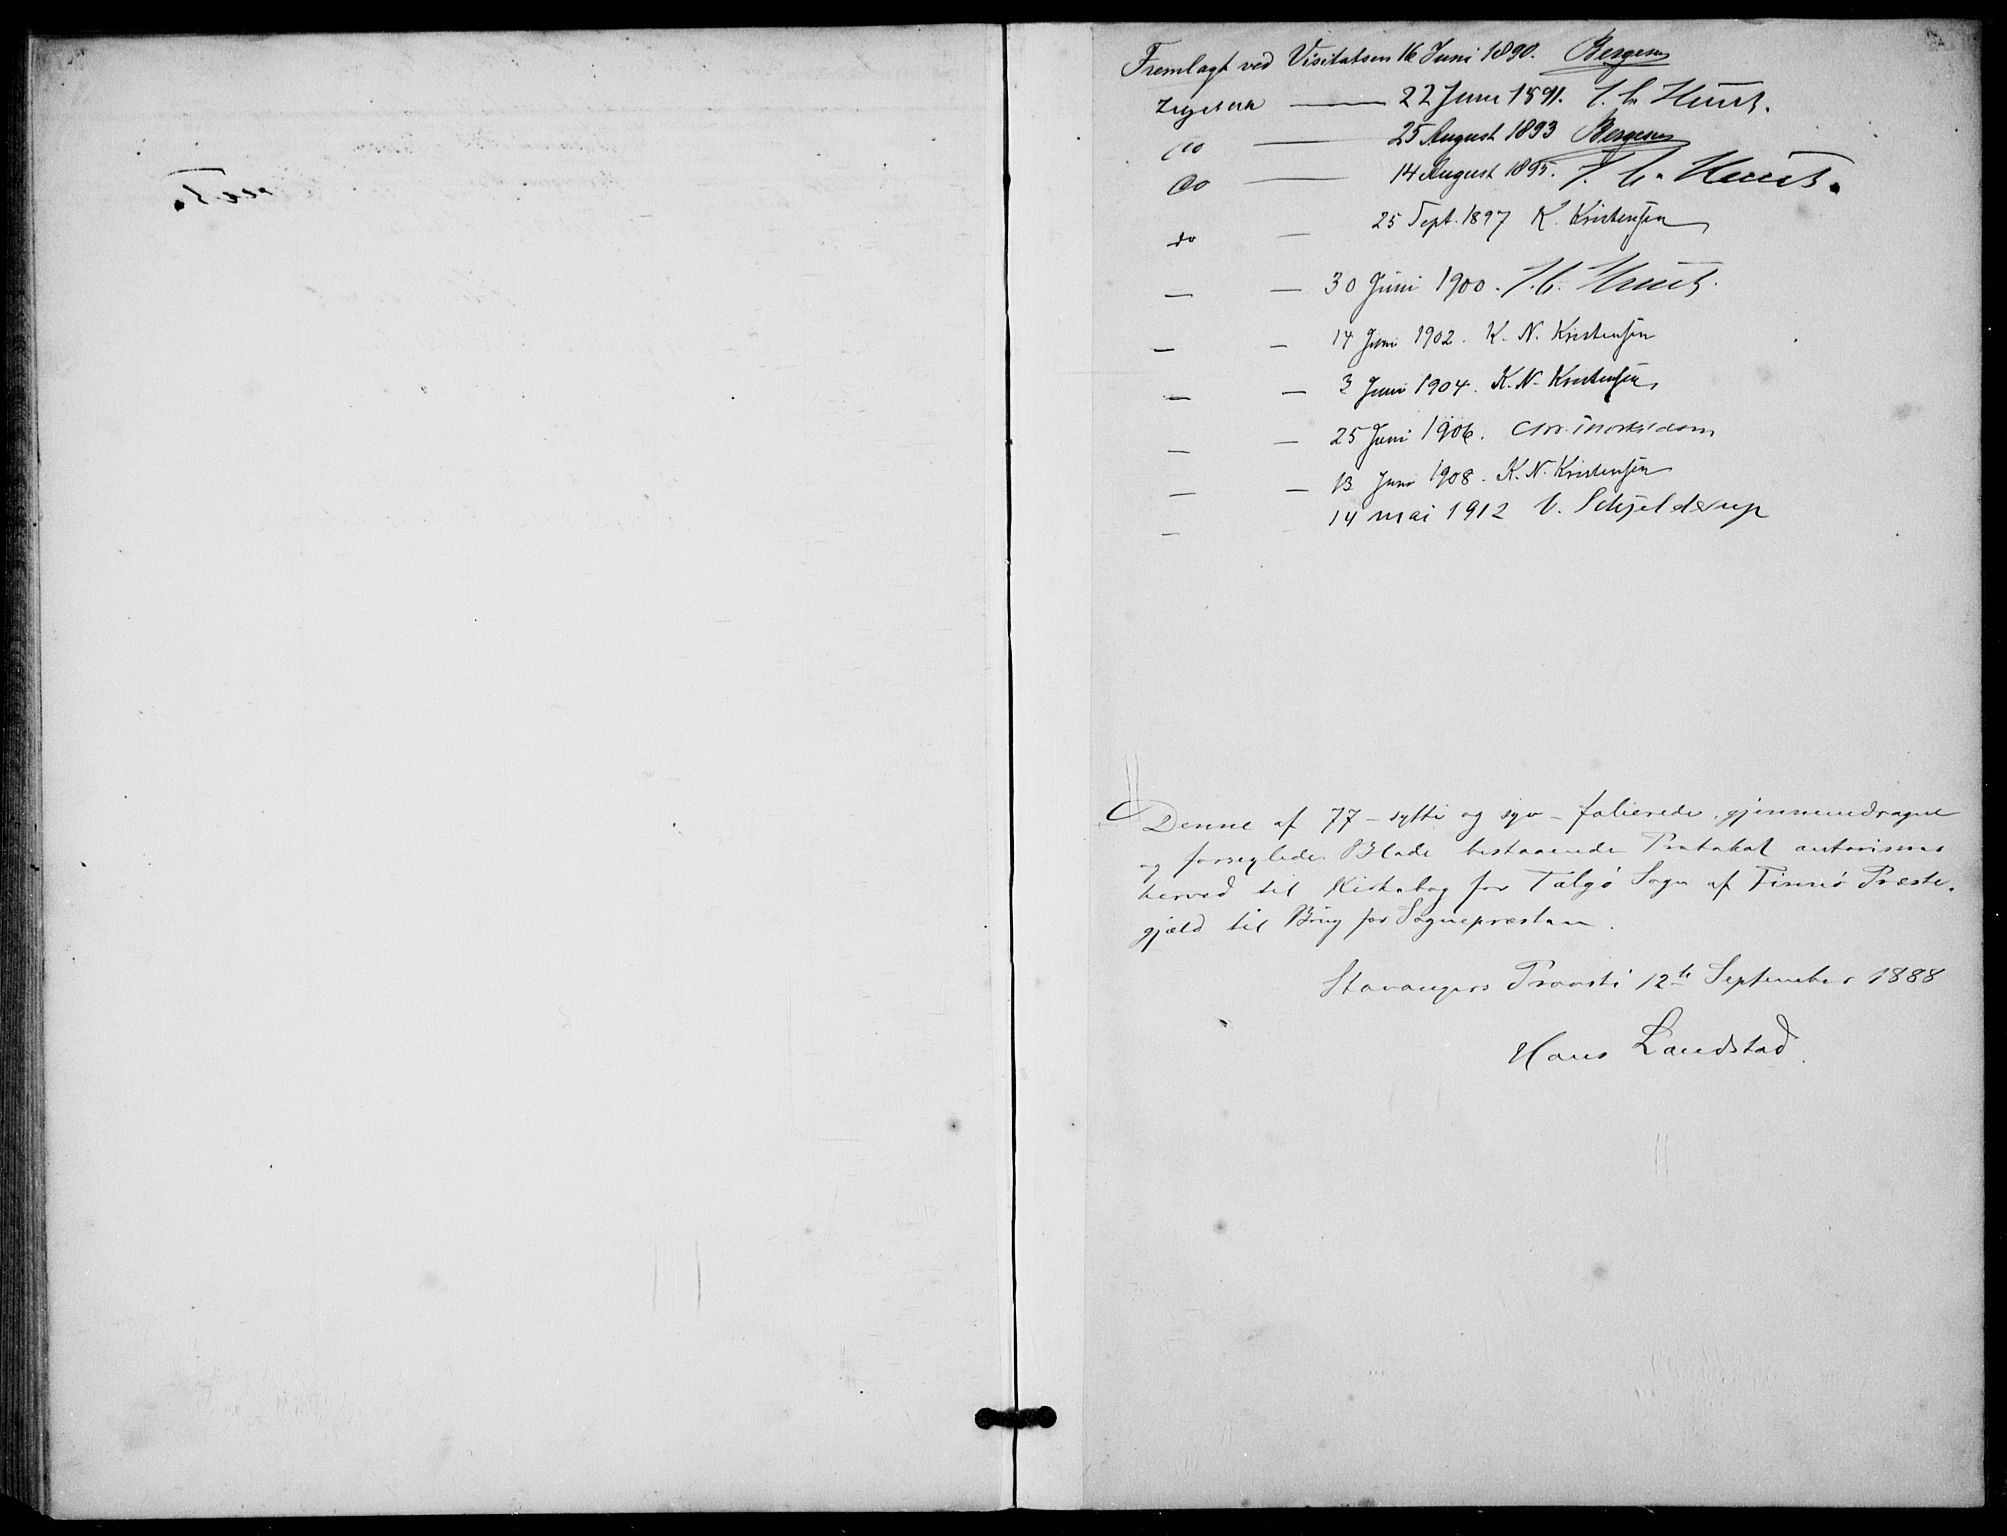 Fremlagt ved Visitatsen 16 Juni 1890. Bergesen
Ligeledes — 22 Juni 1891. J. C. Huus.
do — 25 August 1893 Bergesen
do — 14 August 1895. J. C. Huus.
do — 25 Sept. 1897 K. Kristensen
— — 30 Juni 1900. J. C. Huus.
— — 14 Juni 1902. K. N. Kristensen
— — 3 Juni 1904. K. N. Kristensen
— — 25 Juni 1906. Chr.
— — 13 Juni 1908. K. N. Kristensen
— 14 mai 1912 V. Schjelderup
Denne af 77 - sytti og syv - folierede, gjennemdragne
og forseglede Blade bestaaende Protokol autoriseres
herved til Kirkebog for Talgø Sogn af Finnø Præste-
gjæld til Brug for Sognepræsten.
Stavangers Provsti 12te September 1888
Hans Landstad.